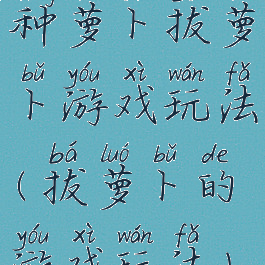 种萝卜拔萝
bǔ yóu xì wán fǎ
卜游戏玩法
bá luó bǔ de
(拔萝卜的
yóu xì wán fǎ
游戏玩法)